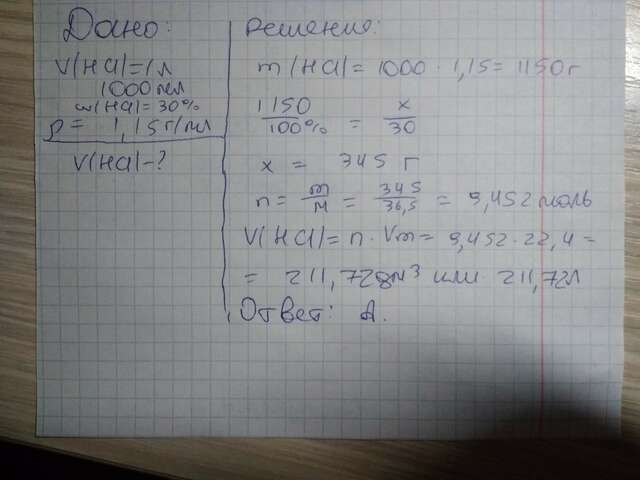 Дано:
V(HCl)=1л
1000мл
w(HCl)=30%
ρ= 1,15г/мл
V(HCl)-?
Решение:
m(HCl)=1000·1,15=1150г
1150/100% = x/30
x = 345 г
n= m/M = 345/36,5 = 9,452моль
V(HCl)=n·Vm=9,452·22,4=
= 211,72дм³ или 211,72л
Ответ: А.